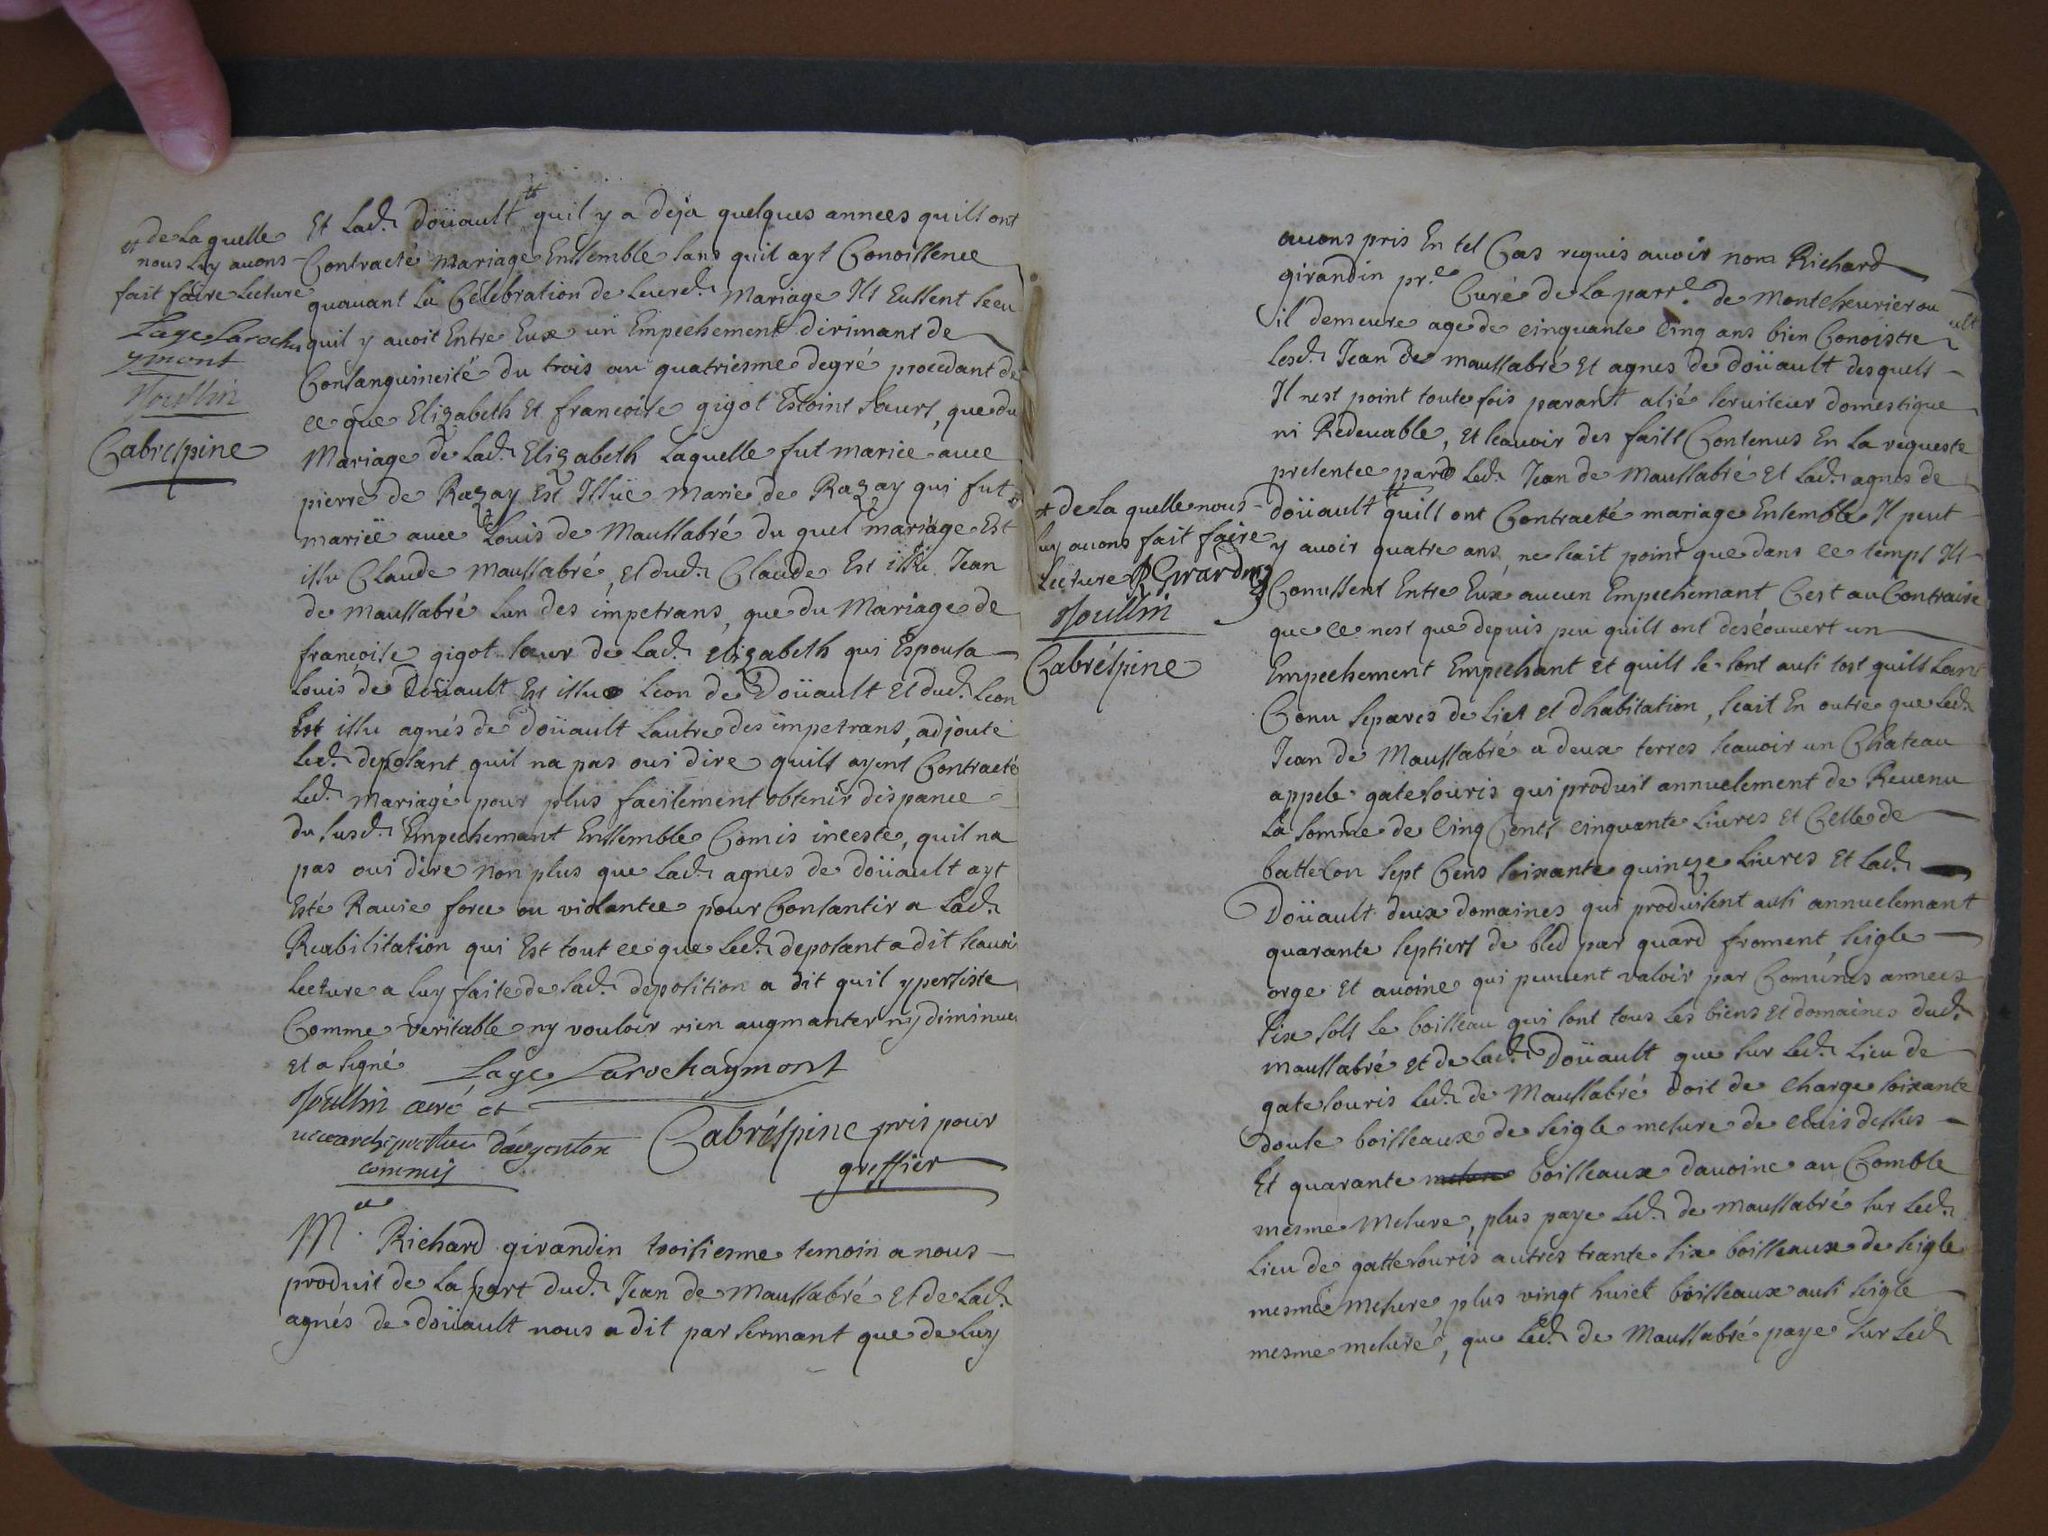 # de Laquelle
nous luy auons
fait faire Lecture
Lage Laroche
ymont
Joullin
Cabrespine
Et Lad. doüault # quil y a deja quelques annees quils ont
Contracté mariage Enssemble sans quil ayt Conoissence
quauant La Célébration de Leurd. mariage Ils Eussent sceu
quil y auoit Entre Eux un Empechement dirimant de
Consanguineité du trois au quatriesme degré procedant de
ce que Elizabeth Et francoise gigot Estoint sœurs, que du
Mariage de Lad. Elizabeth Laquelle fut mariee auec
pierre de Razay Est Issüe Marie de Razay qui fut
mariëe auec Louis de Maussabré du quel mariage Est
issu Claude Maussabré, et dud. Claude Est issu Jean
de Maussabré lun des impetrans, que du Mariage de
francoise gigot sœur de Lad. Elizabeth qui Espousa
Louis de Doüault Est issu Leon de Doüault et dud. Leon
Est issu agnés de doüault Lautre des impetrans, adjouté
Led. deposant quil na pas oui dire quils ayent Contracté
Led. Mariagé pour plus facilement obtenir dispance
du susd. Empechemant Enssemble Comis inceste, quil na
pas oui dire non plus que Lad. agnes de doüault ayt
Esté Rauie force ou violantee pour Consantir a Lad.
Reabilitation qui Est tout ce que Led. deposant a dit scauoi
Lecture a luy faite de sad. deposition a dit quil y persiste
Comme veritable ny vouloir rien augmanter ny diminuer
et a signé Lage Larochaymont
Joullin curé et
vicearchiprestre dargenton Cabréspine pris pour
commis greffier
Me. Richard girandin troisiesme temoin a nous
produit de La part dud. Jean de Maussabré Et de Lad.
agnés de doüault nous a dit par sermant que de luy
auons pris En tel Cas requis auoir nom Richard
girandin pre. Curé de La parre. de Montcheurier ou
il demeure age de cinquante Cinq ans bien Conoistre
Lesd. Jean de maussabré Et agnes de doüault desquels
Il nest point toute fois parant alié seruiteur domestique
ni Redeuable, et scauoir des faits Contenus En La requeste
presentee par Led. Jean de Maussabré et Lad. agnes de
# de La quelle nous
luy auons fait faire
Lecture R Girardin
Joullin
Cabréspine
doüault # quils ont Contracté mariage Ensemble Il peut
y auoir quatre ans, ne scait point que dans ce temps Ils
Conussent Entre Eux aucun Empechémant Cest au Contraire
que ce nest que depuis peu quils ont descouuert un
Empechement Empechant et quils se sont ausi tost quils Lont
Conu separes de Lict et dhabitation, scait En outre que Led.
Jean de Maussabré a deux terres scauoir un Chateau
appele gatesouris qui produit annuelement de Reuenu
La somme de Cinq Cents cinquante Liures et Celle de
batteson sept Cens soixante quinze Liures Et Lad.
Doüault deux domaines qui produisent ausi annuelemant
quarante septiers de bled par quard froment, seigle
orge Et auoine qui peuuent valoir par Comúnes annees
six sols le boisseau qui sont tous Les biens Et domaines dud.
maussabré et de Lad. Doüault que sur Led. Lieu de
gatesouris Led. de Maussabré doit de charge soixante
douse boisseaux de seigle mesure de dessus
Et quarante boisseaux dauoine au Comble
mesme Mesure, plus paye Led. de maussabré sur Led.
Lieu de gattesouris autres trante six boisseaux de seigle
mesme Mesure plus vingt huict boisseaux ausi seigle
mesme mesuré, que Led. de Maussabré paye sur Led.